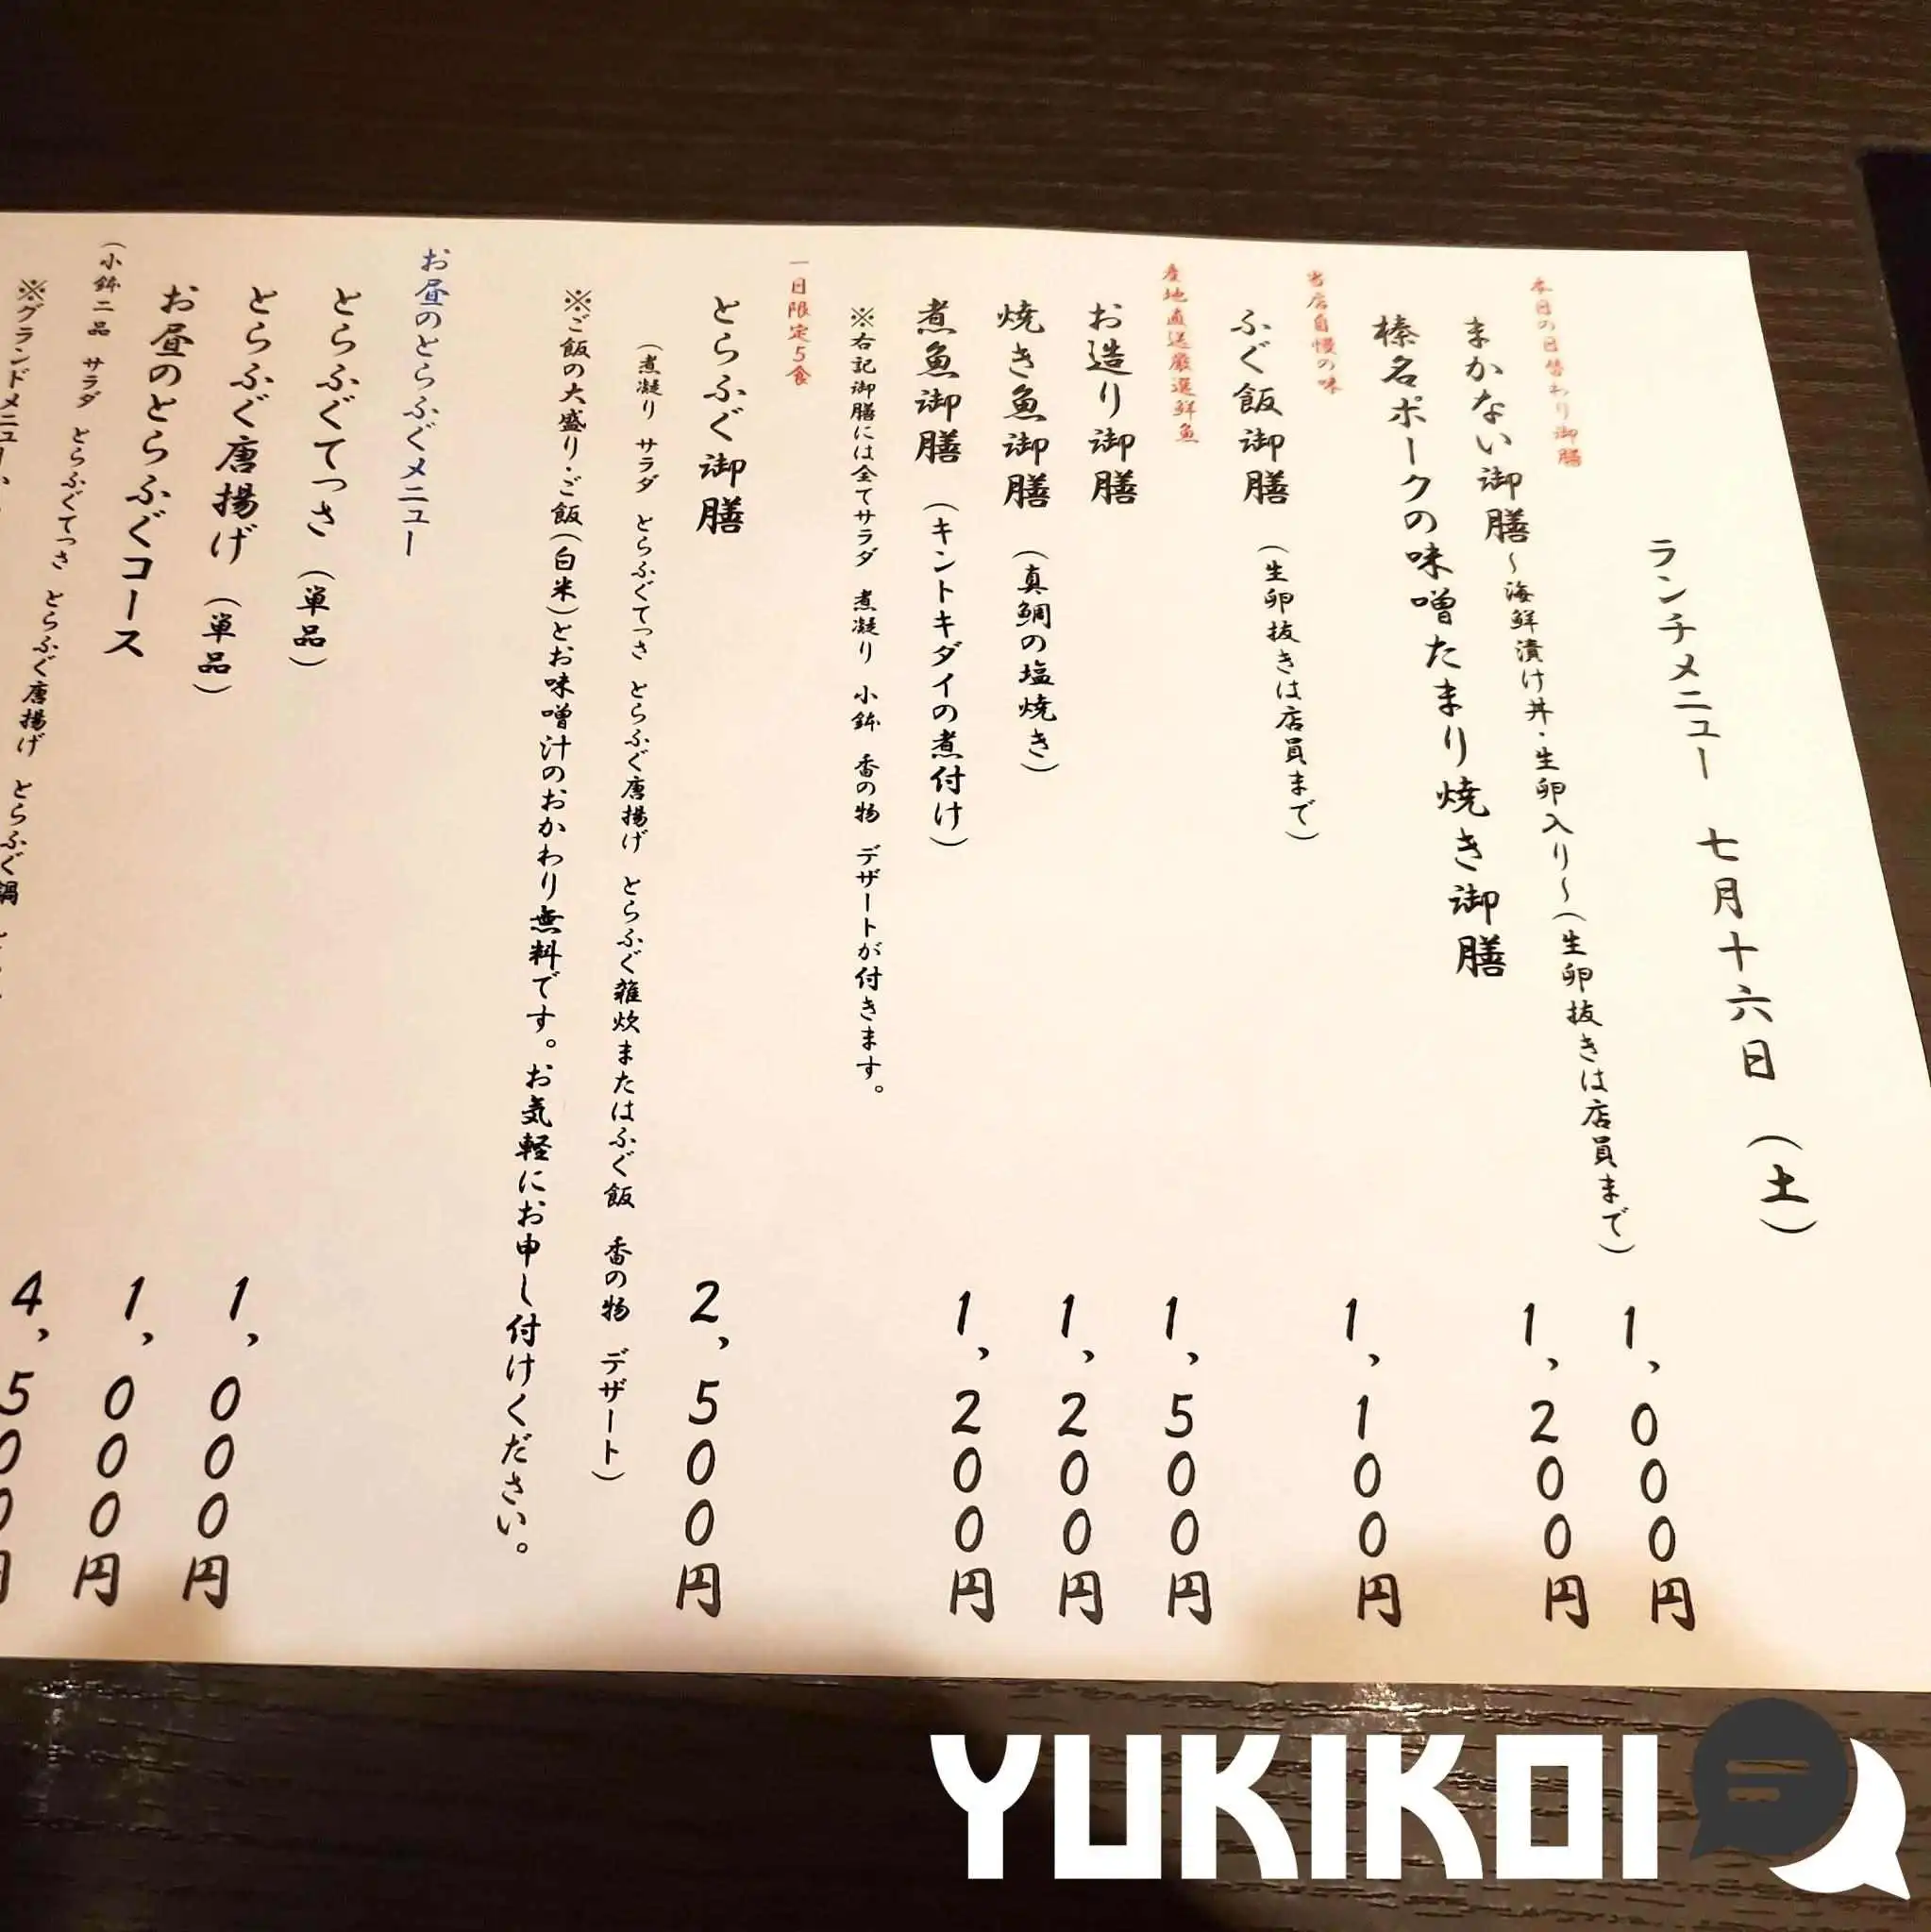 ランチメニュー 七月十六日(土)
本日の日替わり御膳
まかない御膳～海鮮漬け丼・生卵入り～(生卵抜きは店員まで) 1,000円
榛名ポークの味噌たまり焼き御膳 1,200円
当店自慢の味
ふぐ飯御膳 (生卵抜きは店員まで) 1,100円
産地直送厳選鮮魚
お造り御膳 1,500円
焼き魚御膳 (真鯛の塩焼き) 1,200円
煮魚御膳 (キントキダイの煮付け) 1,200円
※右記御膳には全てサラダ 煮凝り 小鉢 香の物 デザートが付きます。
一日限定5食
とらふぐ御膳 2,500円
(煮凝り サラダ とらふぐてっさ とらふぐ唐揚げ とらふぐ雑炊またはふぐ飯 香の物 デザート)
※ご飯の大盛り・ご飯(白米)とお味噌汁のおかわり無料です。お気軽にお申し付けください。
お昼のとらふぐメニュー
とらふぐてっさ (単品) 1,000円
とらふぐ唐揚げ (単品) 1,000円
お昼のとらふぐコース 4,500円
(小鉢二品 サラダ とらふぐてっさ とらふぐ唐揚げ とらふぐ鍋
※グランドメニュー
YUKIKOI